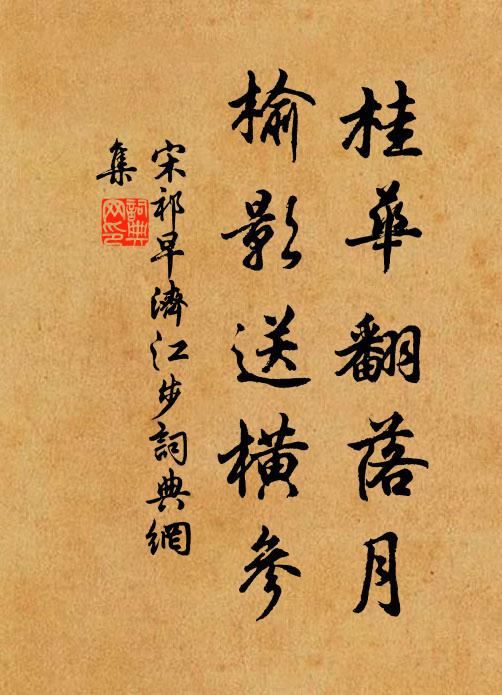 桂華翻落月
榆影送橫參
宋祁早濟江步詞典網
集
詞典網印